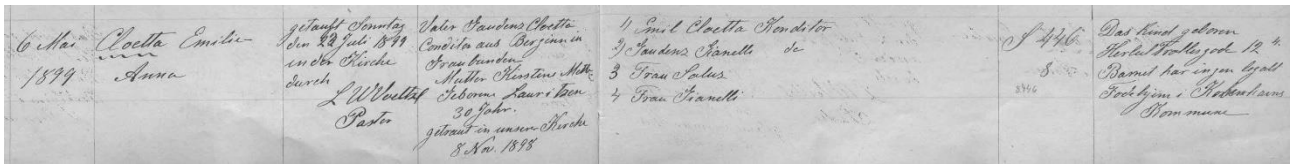 6 Mai
1899
Cloetta Emilie
Anna
getauft Sonntag
den 22 Juli 1899
in der Kirche
durch
Pastor
Vater Gaudenz Cloetta
Conditor aus Bergün in
Graubünden
Mutter Kirstine
Geborene Lauritzen
30 Jahr.
getraut in unserer Kirche
8 Nov. 1898
1) Emil Cloetta Konditor
2) Gaudenz Gianelli do
3 Frau Salus
4 Frau Gianelli
S 446.
8
8446
Das Kind geboren
Herluf Trollesgade 12
Barnet har ingen legalt
Fødehjem i Københavns
Kommune